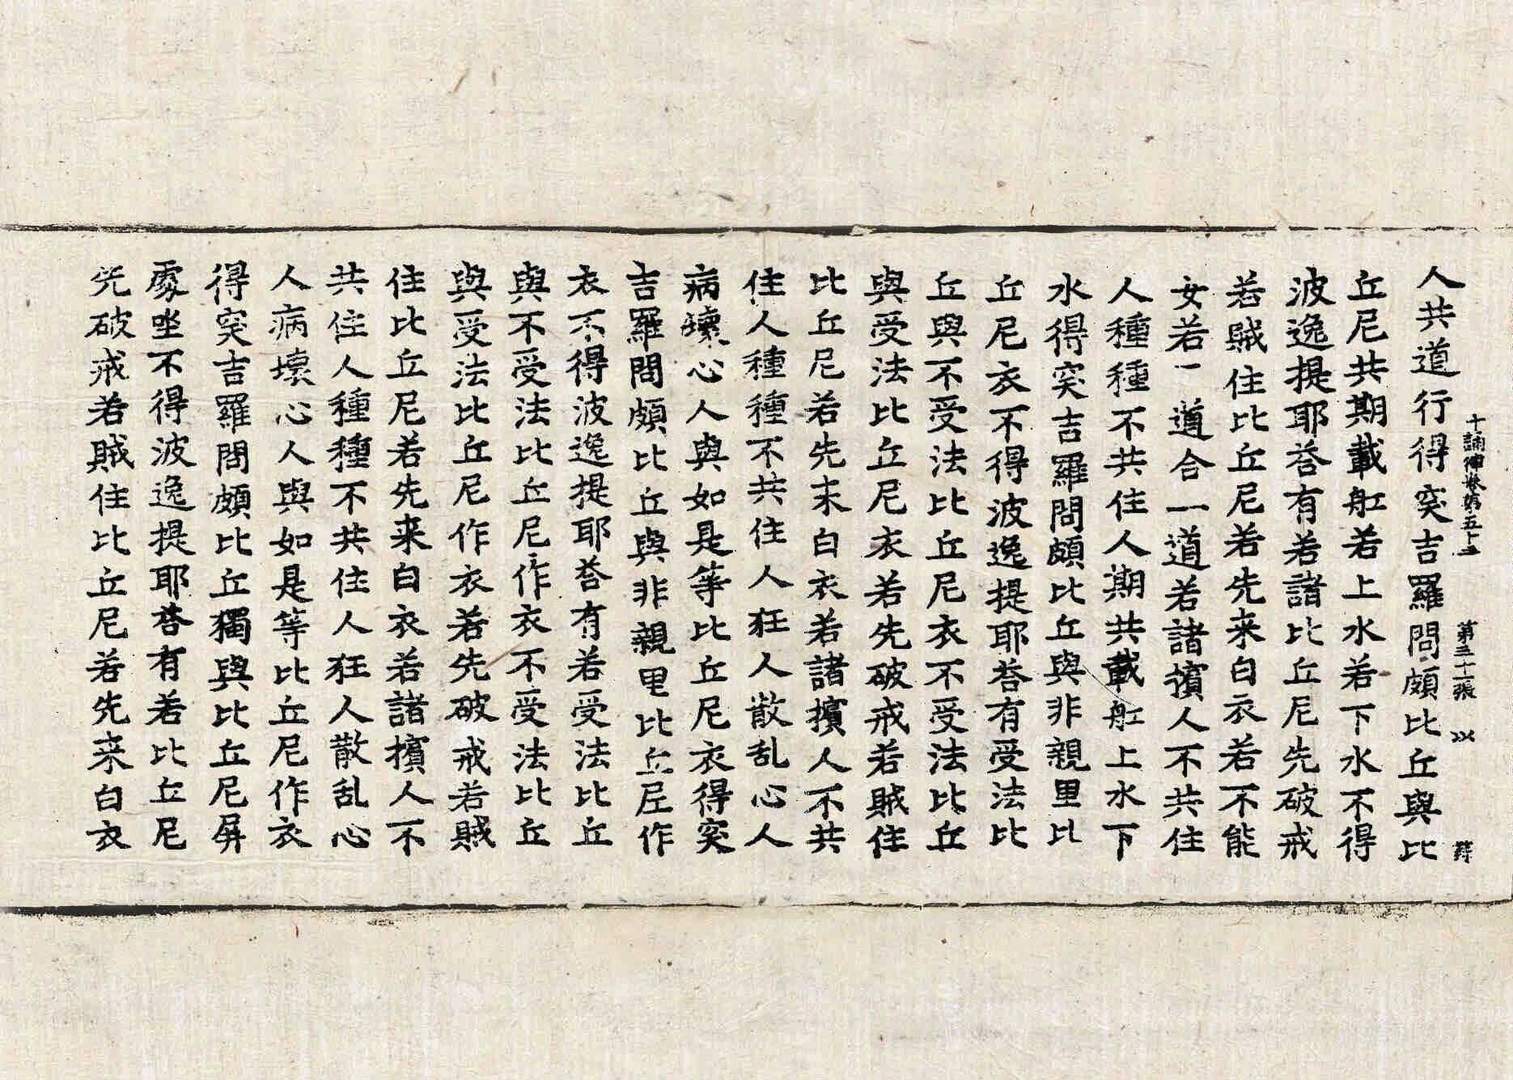 人共道行得突吉羅問頗比丘與比
十誦律卷第五十二 第三十張 以
丘尼共期載舡若上水若下水不得
波逸提耶荅有若諸比丘尼先破戒
若賊住比丘尼若先来白衣若不能
女若一道合一道若諸擯人不共住
人種種不共住人期共載舡上水下
水得突吉羅問頗比丘與非親里比
丘尼衣不得波逸提耶荅有受法比
丘與不受法比丘尼衣不受法比丘
與受法比丘尼衣若先破戒若賊住
比丘尼若先来白衣若諸擯人不共
住人種種不共住人狂人散乱心人
病壞心人與如是等比丘尼衣得突
吉羅問頗比丘與非親里比丘尼作
衣不得波逸提耶荅有若受法比丘
與不受法比丘尼作衣不受法比丘
與受法比丘尼作衣若先破戒若賊
住比丘尼若先来白衣若諸擯人不
共住人種種不共住人狂人散乱心
人病壞心人與如是等比丘尼作衣
得突吉羅問頗比丘獨與比丘尼屏
處坐不得波逸提耶荅有若比丘尼
先破戒若賊住比丘尼若先来白衣